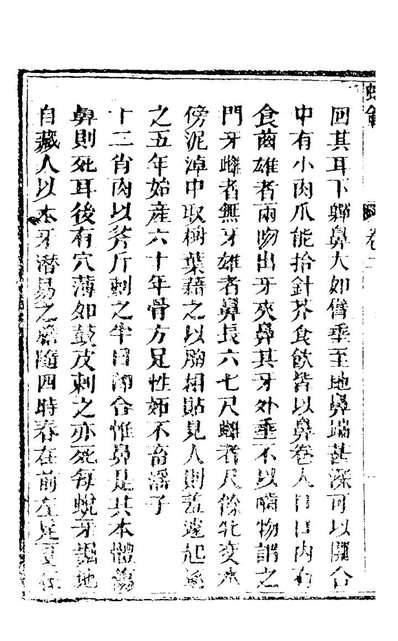 卷二
回其耳下軃鼻大如臂垂至地鼻端甚深可以開合
中有小肉爪能拾針芥食飲皆以鼻卷入口口內有
食齒雄者兩吻出牙夾鼻其牙外垂不以嚼物謂之
門牙雌者無牙雄者鼻長六七尺雌者尺餘牝交水
傍泥淖中取樹葉藉之以胸相貼見人則羞遽起逐
之五年始產六十年骨方足性妬不畜淫子
十二肖肉以斧斤刺之半日即合惟鼻是其本體傷
鼻則死耳後有穴薄如鼓皮刺之亦死每蛻牙掘地
自藏人以木牙潛易之膽隨四時春在前左足夏在